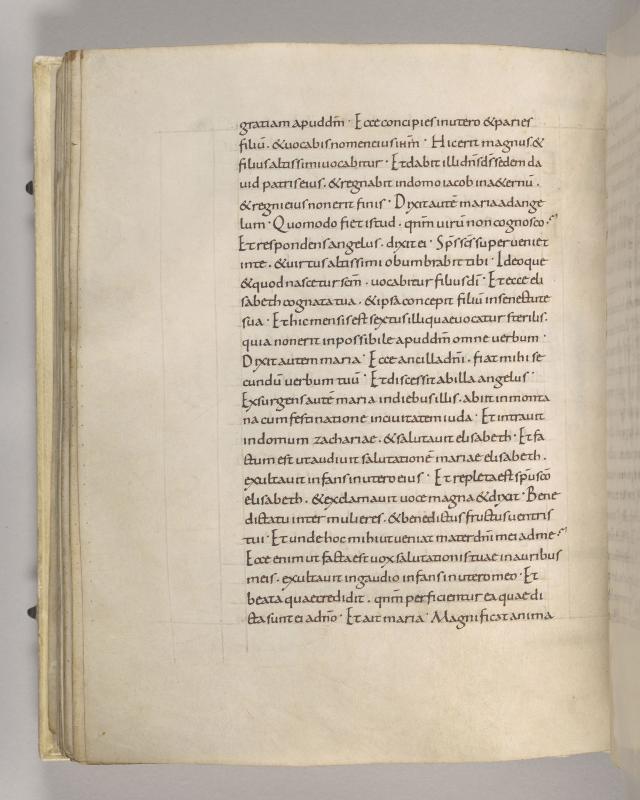 gratiam apud dm̄ · Ecce concipies in utero & paries
filiū. & uocabis nomen eius ihm̄ · Hic erit magnus &
filius altissimi uocabitur · Et dabit illi dn̄s ds̄ sedem da
uid patris eius. & regnabit in domo iacob in aeternū.
& regni eius non erit finis · Dixit autē maria ad ange
lum · Quomodo fiet istud. qnm̄ uirū non cognosco·
Et respondens angelus. dixit ei · Sp̄s sc̄s superueniet
in te. & uirtus altissimi obumbrabit tibi · Ideoque
& quod nascetur scm̄. uocabitur filius dī · Et ecce eli
sabeth cognata tua. & ipsa concepit filiū in senectute
sua · Et hic mensis est sextus illi quae uocatur sterilis.
quia non erit inpossibile apud dm̄ omne uerbum ·
Dixit autem maria · Ecce ancilla dn̄i. fiat mihi se
cundū uerbum tuū · Et discessit ab illa angelus ·
Exsurgens autē maria in diebus illis. abiit in monta
na cum festinatione in ciuitatem iuda · Et intrauit
in domum zachariae. & salutauit elisabeth · Et fa
ctum est ut audiuit salutationē mariae elisabeth.
exultauit infans in utero eius · Et repleta est sp̄u sc̄o
elisabeth. & exclamauit uoce magna & dixit · Bene
dicta tu inter mulieres. & benedictus fructus uentris
tui · Et unde hoc mihi ut ueniat mater dn̄i mei ad me·
Ecce enim ut facta est uox salutationis tuae in auribus
meis. exultauit in gaudio infans in utero meo · Et
beata quae credidit. qnm̄ perficientur ea quae di
cta sunt ei a dn̄o · Et ait maria · Magnificat anima